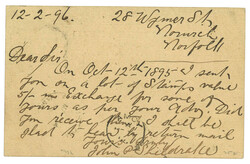 12-2-96.
28 Wymer St,
Norwich
Norfolk
Dear Sir,
On Oct 12th 1895 I sent
you on a lot of Stamps value
5/- in Exchange for some of
yours as per your Note. Did
you receive I shall be
glad to hear by return mail
Yours truly
John